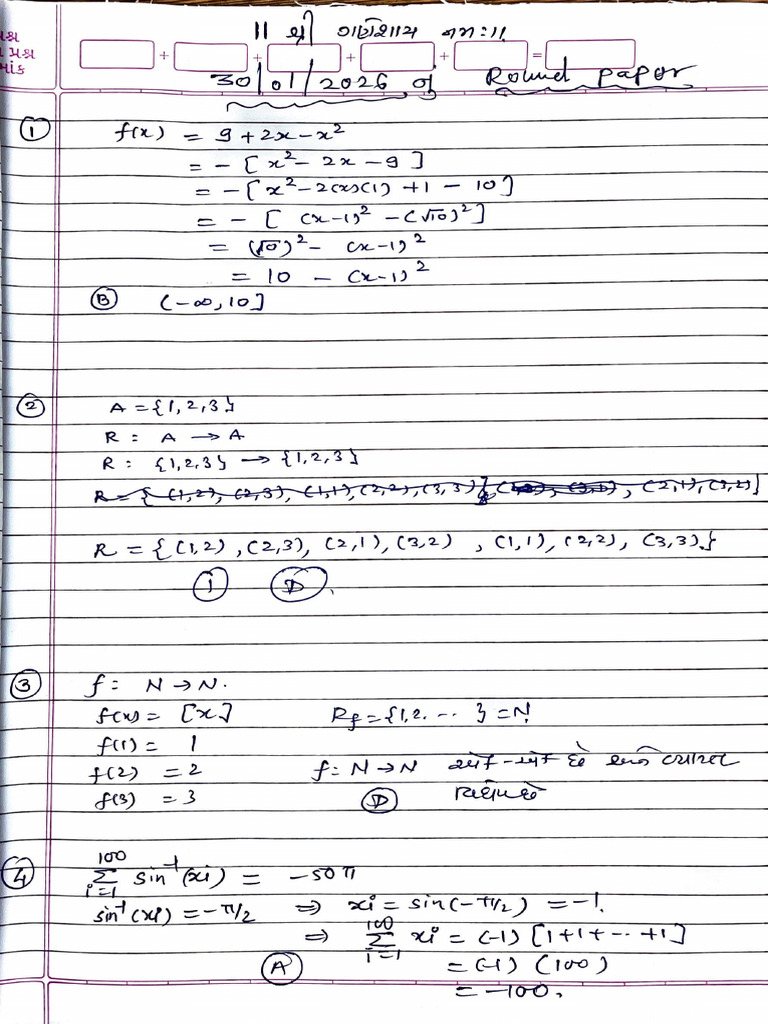 ॥ શ્રી ગણેશાય નમઃ ॥
+ + + + =
30/01/2026 of Round paper
પ્રશ્ન
① f(x) = 9 + 2x - x²
= - [x² - 2x - 9]
= - [x² - 2(x)(1) + 1 - 10]
= - [(x-1)² - (√10)²]
= (√10)² - (x-1)²
= 10 - (x-1)²
Ⓑ (-∞, 10]
② A = {1, 2, 3}
R : A → A
R : {1, 2, 3} → {1, 2, 3}
R = {(1,2), (2,3), (1,1), (2,2), (3,3)} , (2,1), (3,2)}
R = {(1,2), (2,3), (2,1), (3,2) , (1,1), (2,2), (3,3)}
① Ⓓ
③ f : N → N.
f(x) = [x] Rf = {1, 2. ... } = N
f(1) = 1
f(2) = 2 f : N → N એક-એક છે અને વ્યાપ્ત
f(3) = 3 Ⓓ વિધેય છે
④ 100 Σ i=1 sin⁻¹(xi) = -50π
sin⁻¹(xi) = -π/2 ⇒ xi = sin(-π/2) = -1.
⇒ 100 Σ i=1 xi = (-1) [1+1+ ... +1]
Ⓐ = (-1) (100)
= -100.